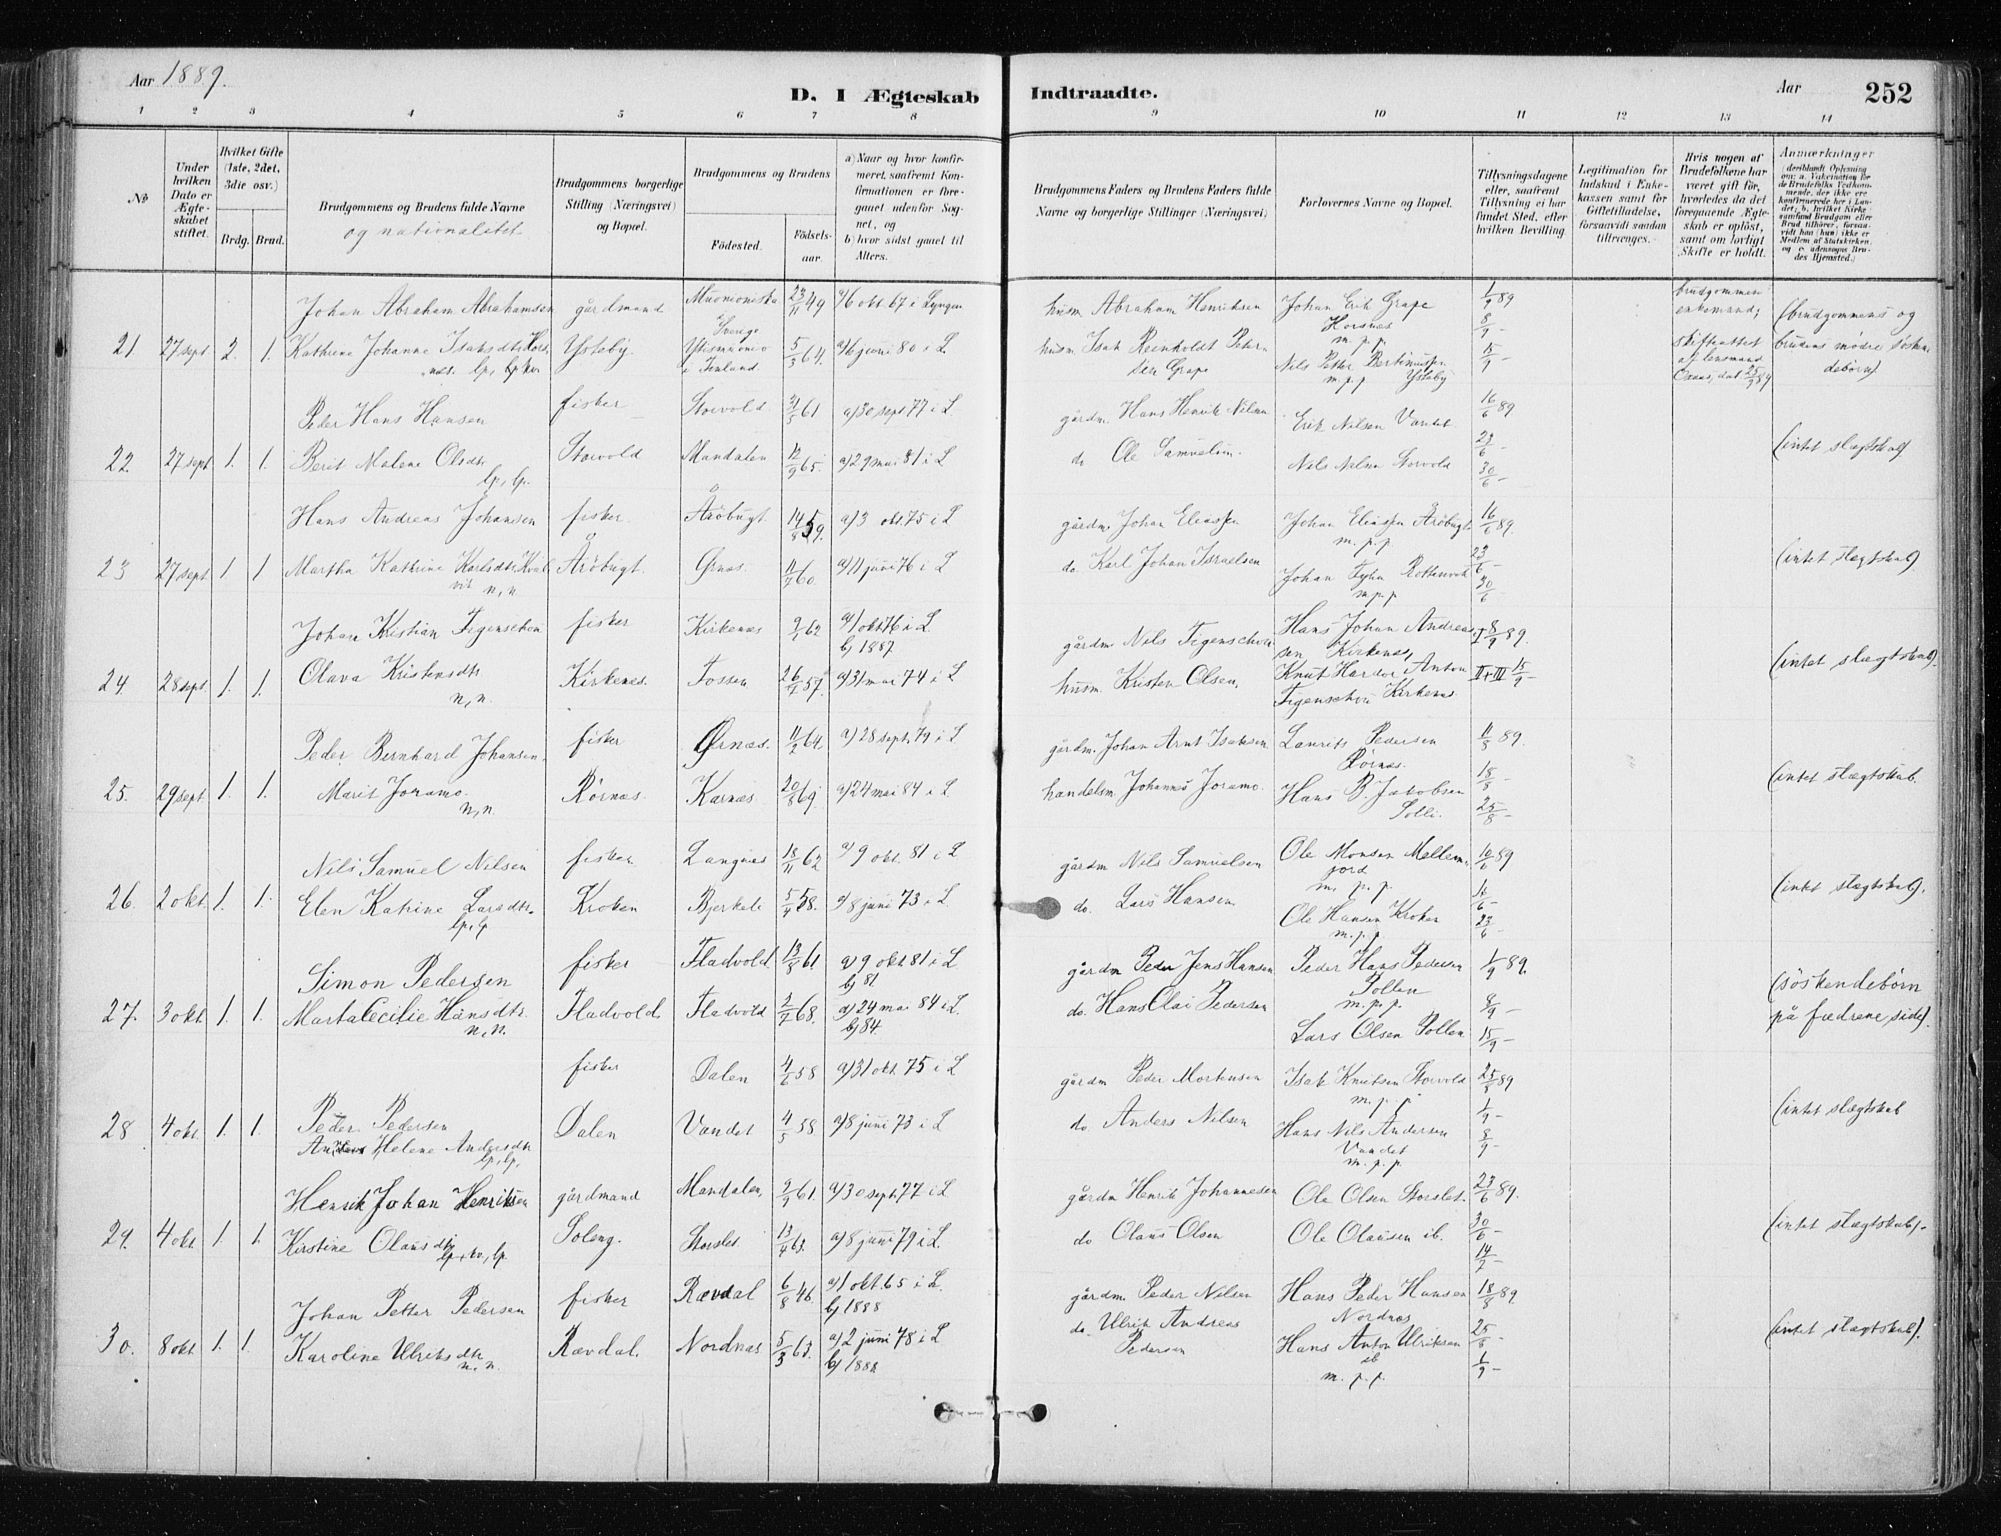 Aar 1889.
D. I Ægteskab Indtraadte.
Aar
252
1 2 3 4 5 6 7 8 9 10 11 12 13 14
No
Under hvilken Dato er Ægteskabet stiftet.
Hvilket Gifte (1ste, 2det, 3die osv.)
Brdg. Brud.
Brudgommens og Brudens fulde Navne
og nationalitet
Brudgommens borgerlige Stilling (Næringsvei) og Bopæl.
Brudgommens og Brudens
Fødested.
Fødselsaar.
a) Naar og hvor konfirmeret, saafremt Konfirmationen er foregaaet udenfor Sognet, og
b) hvor sidst gaaet til Alters.
Brudgommens Faders og Brudens Faders fulde Navne og borgerlige Stillinger (Næringsvei)
Forlovernes Navne og Bopæl.
Tillysningsdagene eller, saafremt Tillysning ei har fundet Sted, efter hvilken Bevilling
Legitimation for Indskud i Enkekassen samt for Giftetilladelse, forsaavidt saadan tiltrænges.
Hvis nogen af Brudefolkene har været gift før, hvorledes da det foregaaende Ægteskab er opløst, samt om lovligt Skifte er holdt.
Anmærkninger
Johan Abraham Abrahamsen gårdmand Muonioniska 23/11 49 a) 6 okt. 67 i Lyngen husm Abraham Henriksen Johan Erik Grape 1/9 89 brudgommen
Horsnæs 8/9 - enkemand; (brudgommens og
21 27 sept 2. 1. Kathrine Johanne Isaksdtr. Ysteby. Sverige 5/3 64. a) 6 juni 80 i L husm. Isak Reinholdt m.p.p. 15/9 - brudens mødre søsken
i Finland Grape Nils Petter Ysteby lensmand debørn)
m.p.p
Peder Hans Hansen fisker Storvold 61 a) 30 sept 77 i L gårdm. Hans Henrik Nilsen Erik Nilsen Vandet 16/6 89
22. 27 sept 1. 1. Berit Malene Olsdtr Storvold Mandalen 12/9 65. a) 29 mai 81 i L do Ole Samuelsen. Nils Nilsen Storvold 23/6 - 30/6 - (intet slægtskab)
lp, lp.
Hans Andreas Johansen fisker. Årøbugt 59. a) 3 okt. 75 i L gårdm. Johan Eliassen Johan Eliassen Årøbugt 16/6 89.
m.p.p.
23 27 sept 1 1 Martha Kathrine Karlsdtr. Årøbugt. Ørnæs. 60 a) 11 juni 76 i L do. Karl Johan Israelsen Johan 23/6 - 30/6 - (intet slægtskab)
n, n m.p.p
Johan Kristian Figenschou fisker Kirkenæs 62 a) 1 okt 76 i L gårdm Nils Figenschou Hans Johan Andreas I 8/9 89.
b) 1887 sen Kirkenæs,
24. 28 sept. 1. 1. Olava Kristensdtr Kirkenæs. Fossen 57. a) 31 mai 74 i L husm. Kristen Olsen, Knut Hardor Anton II+III 15/9 - (intet slægtskab).
n, n. Figenschou Kirkenæs
Peder Bernhard Johansen. fisker Ørnæs. 11/2 64. a) 28 sept. 79 i L gårdm. Johan Arnt Isaksen Laurits Pedersen 11/8 89.
Rørnæs.
25. 29 sept 1. 1. Marit Joramo. Rørnæs. Karnæs. 20/8 69. a) 24 mai 84 i L. handelsm. Johannes Joramo. Hans B. Jakobsen 18/8 - 25/8 - (intet slægtskab.
n, n.
Nils Samuel Nilsen fisker Langnæs 18/11 62 a) 9 okt. 81 i L gårdm Nils Samuelsen Ole Monsen Mellem- 89
jord m. p. p.
26. 2 okt 1. 1. Elen Katrine Larsdtr. Kroken Bjerkeli 58. a) 8 juni 73 i L. do. Lars Hansen Ole Hansen Kroken 16/6 - 23/6 - (intet slægtskab).
lp, lp m.p.p
Simon Pedersen fisker Fladvold 13/8 61 a) 9 okt 81 i L gårdm Peder Jens Hansen. Peder Hans Pedersen 1/9 89.
b) 81 Pollen m.p.p.
27. 3 okt 1. 1. Marta Cecilie Hansdtr. Fladvold. Fladvold 68. a) 24 mai 84 i L. do. Hans Olai Pedersen Lars Olsen Pollen 8/9 - 15/9 - (søskendebørn
n, n. b) 84. på fædrene side).
fisker Dalen 4/6 58 a) 31 okt. 75 i L gårdm Peder Mortensen Isak Knutsen Storvold 25/8 89
m.p.p.
28 4 okt. 1. 1. Peder Pedersen Dalen Vandet 4/5 58 a) 8 juni 73 i L do. Anders Nilsen Hans Nils Andersen 1/9 - 8/9 - (intet slægtskab
Helene Andersdtr Vandet
lp, lp, m.p.p.
Henrik Johan Henriksen gårdmand Mandalen, 2/9 61. a) 30 sept. 77 i L gårdm Henrik Johannesen Ole Olsen Storslet. 23/6 89.
29. 4 okt 1. 1. Kirstine Olausdtr Soleng. Storslet 13/4 63. a) 8 juni 79 i L. do Olaus Olsen Ole Olausen ib. 30/6 - 14/7 - (intet slægtskab).
lp, kv, lp.
Johan Petter Pedersen fisker Rævdal 6/8 46. a) 1 okt. 65 i L. gårdm Peder Nilsen Hans Peder Hansen 18/8 89.
b) 1888 Nordnæs
30. 8 okt 1. 1. Karoline Ulriksdtr Rævdal. Nordnæs 5/3 63. a) 2 juni 78 i L do. Ulrik Andreas Pedersen Hans Anton Ulriksen 25/8 - 1/9 - (intet slægtskab).
n. n. b) 1888 ib m. p. p.